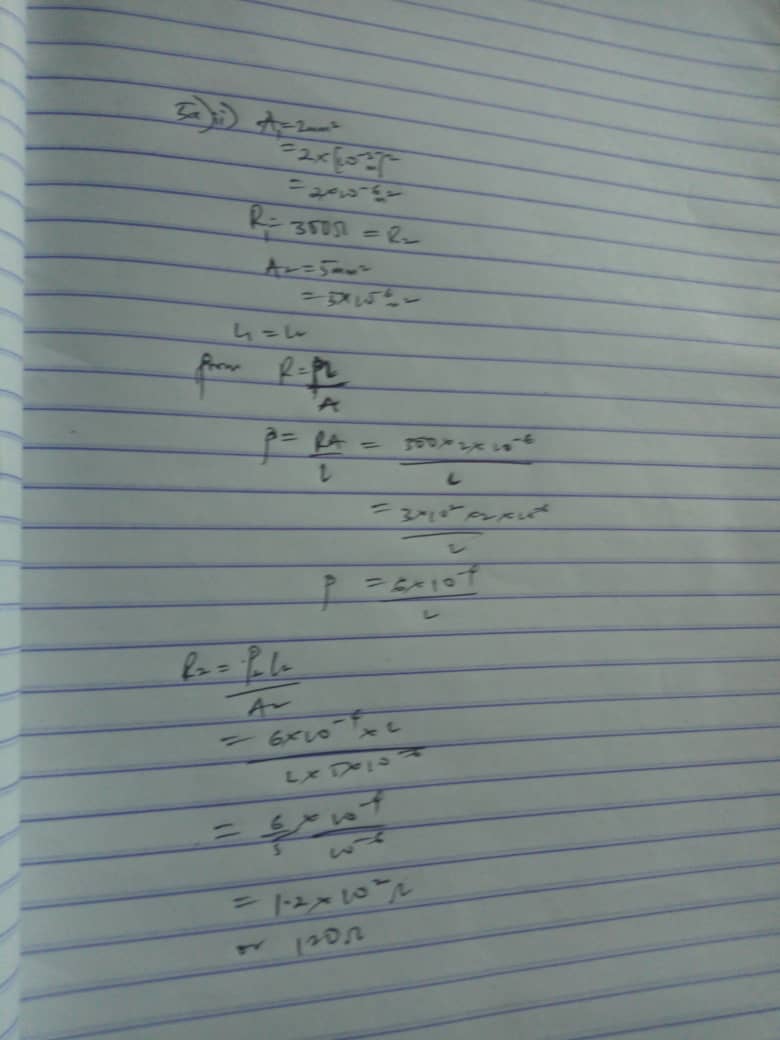 5a)ii) A₁=2mm²
=2×[10⁻³m]²
=2×10⁻⁶m²
R₁=300Ω = R₂
A₂=5mm²
=5×10⁻⁶m²
L₁=L₂
from R=ρL
A
ρ= RA = 300×2×10⁻⁶
L L
= 3×10²×2×10⁻⁶
L
ρ =6×10⁻⁴
L
R₂= ρ₂L₂
A₂
= 6×10⁻⁴×L
L×5×10⁻⁶
= 6 × 10⁻⁴
5 10⁻⁶
= 1.2×10²Ω
or 120Ω